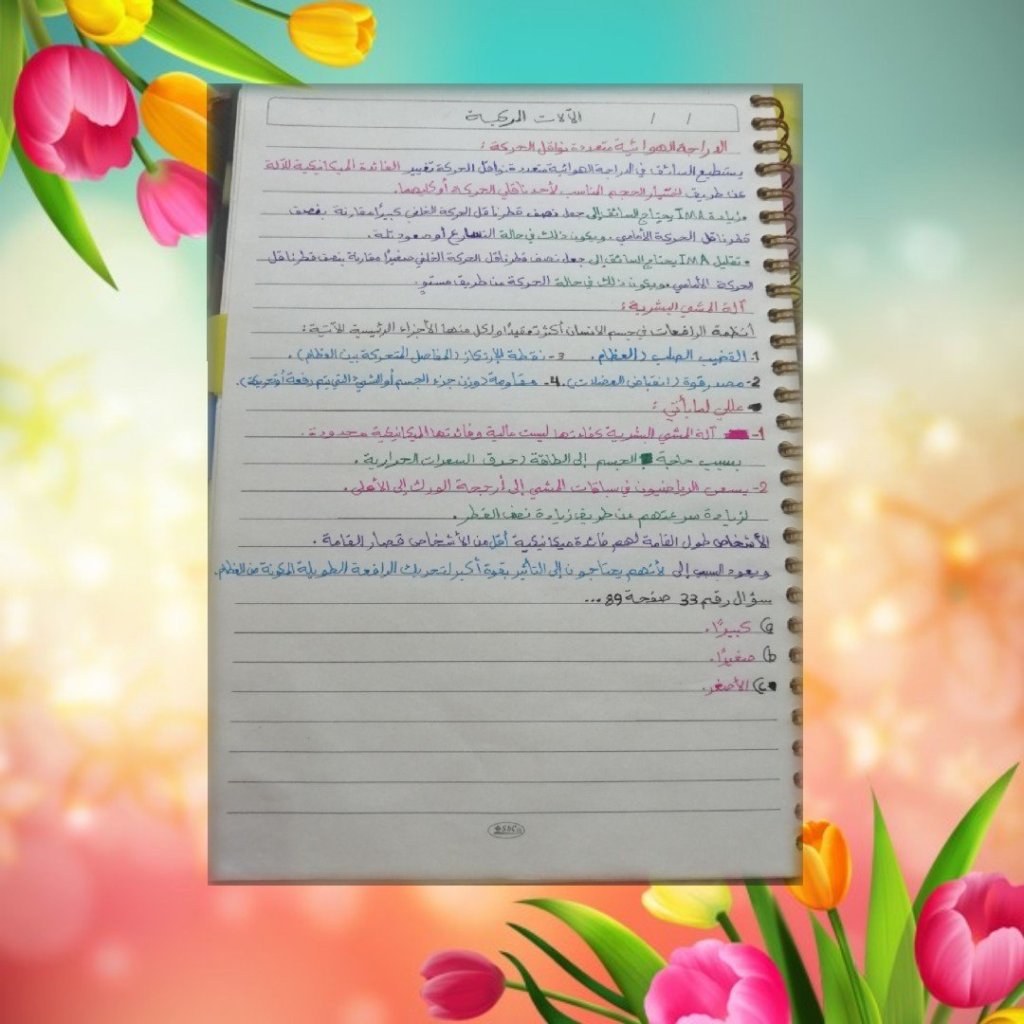 الآلات المركبة / /
الدراجة الهوائية متعددة نواقل الحركة :
يستطيع السائق في الدراجة الهوائية متعددة نواقل الحركة تغيير الفائدة الميكانيكية للآلة
عن طريق اختيار الحجم المناسب لأحد ناقلي الحركة أو كليهما.
• زيادة IMA يحتاج السائق إلى جعل نصف قطر ناقل الحركة الخلفي كبيرًا مقارنة بنصف
قطر ناقل الحركة الأمامي. ويكون ذلك في حالة التسارع أو صعود تلة.
• تقليل IMA يحتاج السائق إلى جعل نصف قطر ناقل الحركة الخلفي صغيرًا مقارنة بنصف قطر ناقل
الحركة الأمامي ويكون ذلك في حالة الحركة على طريق مستوٍ.
آلة المشي البشرية :
أنظمة الرافعات في جسم الانسان أكثر تعقيدًا ولكل منها الأجزاء الرئيسية الآتية :
1. القضيب الصلب (العظام. 3- نقطة الإرتكاز (المفاصل المتحركة بين العظام).
2- مصدر قوة (انقباض العضلات). 4- مقاومة (وزن جزء الجسم أو الشيء الذي يتم رفعة أو تحريكة).
عللي لما يأتي :
1- آلة المشي البشرية كفاءتها ليست عالية وفائدتها الميكانيكية محدودة.
بسبب حاجة الجسم إلى الطاقة (حرق السعرات الحرارية.
2- يسعى الرياضيون في سباقات المشي إلى أرجحة الورك إلى الأعلى.
لزيادة سرعتهم عن طريق زيادة نصف القطر.
الأشخاص طول القامة لهم فائدة ميكانيكية أقل من الأشخاص قصار القامة.
ويعود السبب إلى لأنهم يحتاجون إلى التأثير بقوة أكبر لتحريك الرافعة الطويلة المكونة من العظام.
سؤال رقم 33 صفحة 89 ...
a) كبيرًا.
b) صغيرًا.
c) الأصغر.